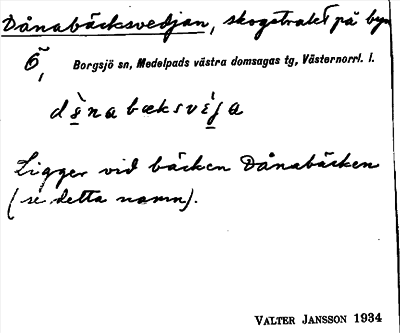 Dånabäcksvedjan, skogstrakt på byn
Ö, Borgsjö sn, Medelpads västra domsagas tg, Västernorrl. l.
Ligger vid bäcken Dånabäcken
(se detta namn).
VALTER JANSSON 1934